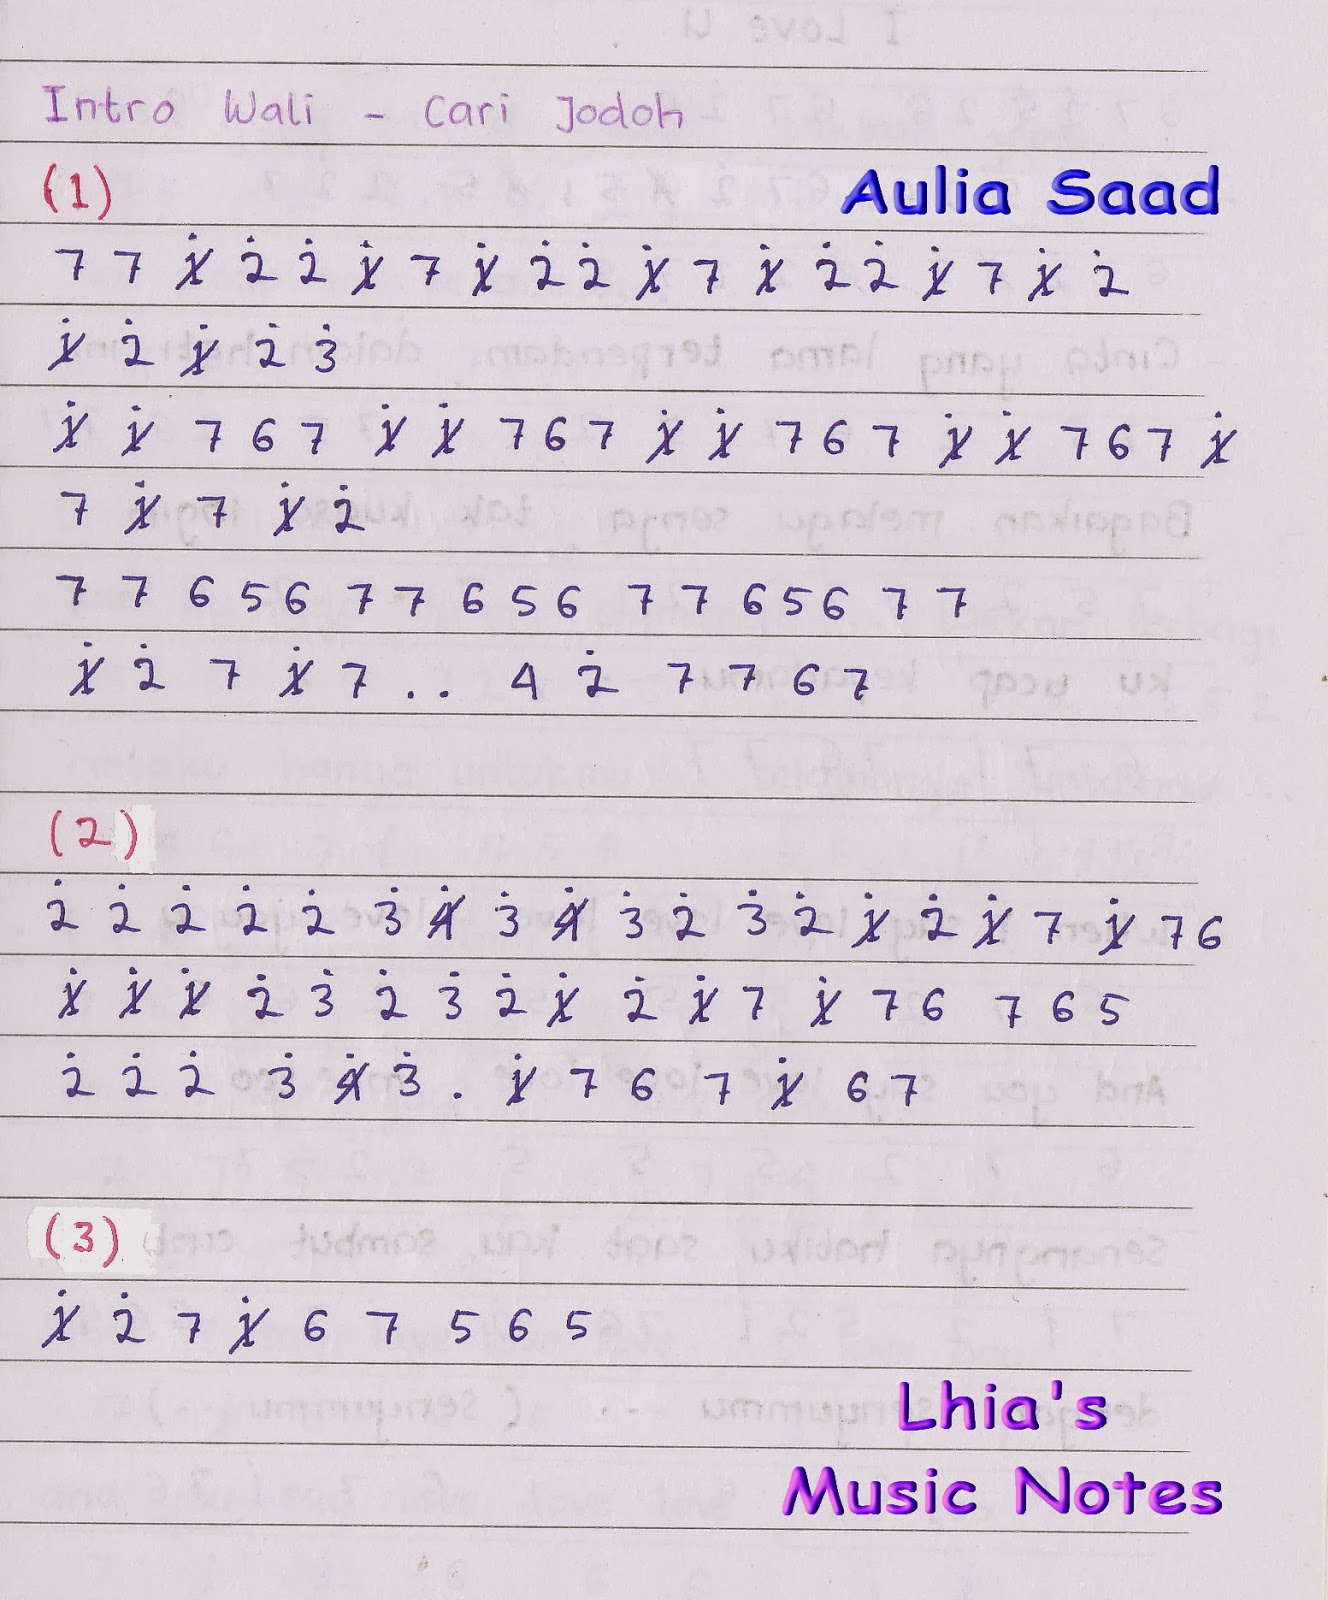 Intro Wali - Cari Jodoh
(1)
Aulia Saad
7 7 1̸̇ 2̇ 2̇ 1̸̇ 7 1̸̇ 2̇ 2̇ 1̸̇ 7 1̸̇ 2̇ 2̇ 1̸̇ 7 1̸̇ 2̇
1̸̇ 2̇ 1̸̇ 2̇ 3̇
1̸̇ 1̸̇ 7 6 7 1̸̇ 1̸̇ 7 6 7 1̸̇ 1̸̇ 7 6 7 1̸̇ 1̸̇ 7 6 7 1̸̇
7 1̸̇ 7 1̸̇ 2̇
7 7 6 5 6 7 7 6 5 6 7 7 6 5 6 7 7
1̸̇ 2̇ 7 1̸̇ 7 . . 4 2̇ 7 7 6 7
(2)
2̇ 2̇ 2̇ 2̇ 2̇ 3̇ 4̸̇ 3̇ 4̸̇ 3̇ 2̇ 3̇ 2̇ 1̸̇ 2̇ 1̸̇ 7 1̸̇ 7 6
1̸̇ 1̸̇ 1̸̇ 2̇ 3̇ 2̇ 3̇ 2̇ 1̸̇ 2̇ 1̸̇ 7 1̸̇ 7 6 7 6 5
2̇ 2̇ 2̇ 3̇ 4̸̇ 3̇ . 1̸̇ 7 6 7 1̸̇ 6 7
(3)
1̸̇ 2̇ 7 1̸̇ 6 7 5 6 5
Lhia's
Music Notes